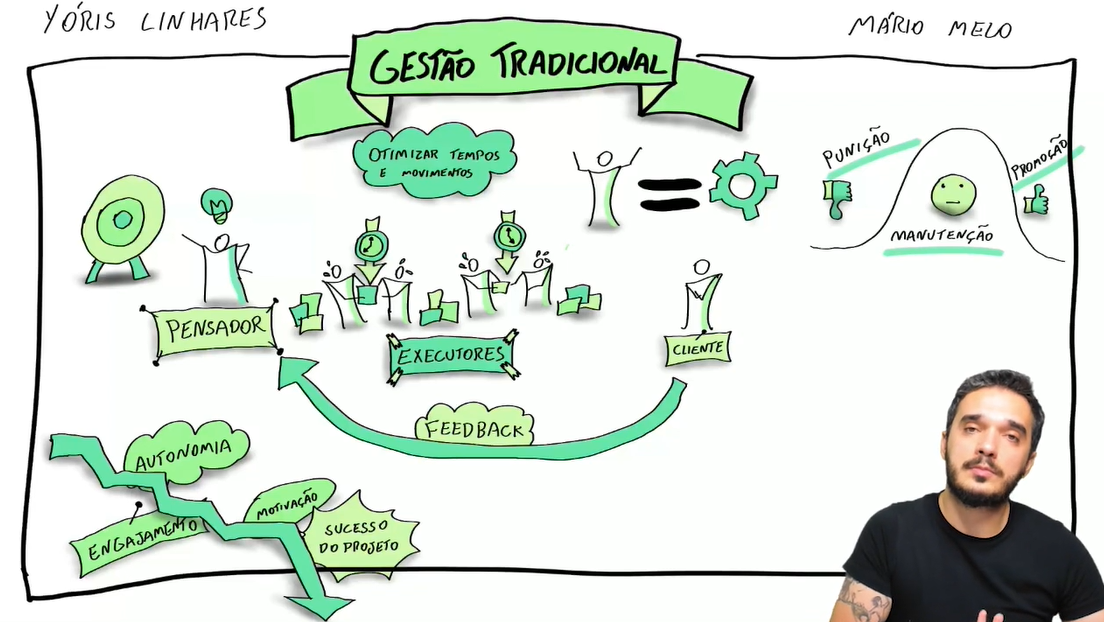 YÓRIS LINHARES
MÁRIO MELO
GESTÃO TRADICIONAL
OTIMIZAR TEMPOS
E MOVIMENTOS
PUNIÇÃO
PROMOÇÃO
MANUTENÇÃO
PENSADOR
EXECUTORES
CLIENTE
FEEDBACK
AUTONOMIA
ENGAJAMENTO
MOTIVAÇÃO
SUCESSO
DO PROJETO